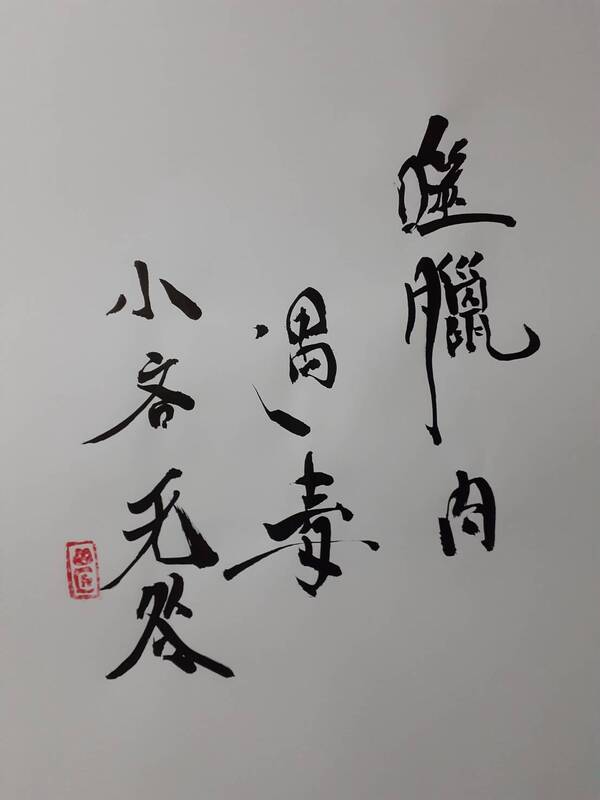 噬臘肉
遇毒
小吝无咎